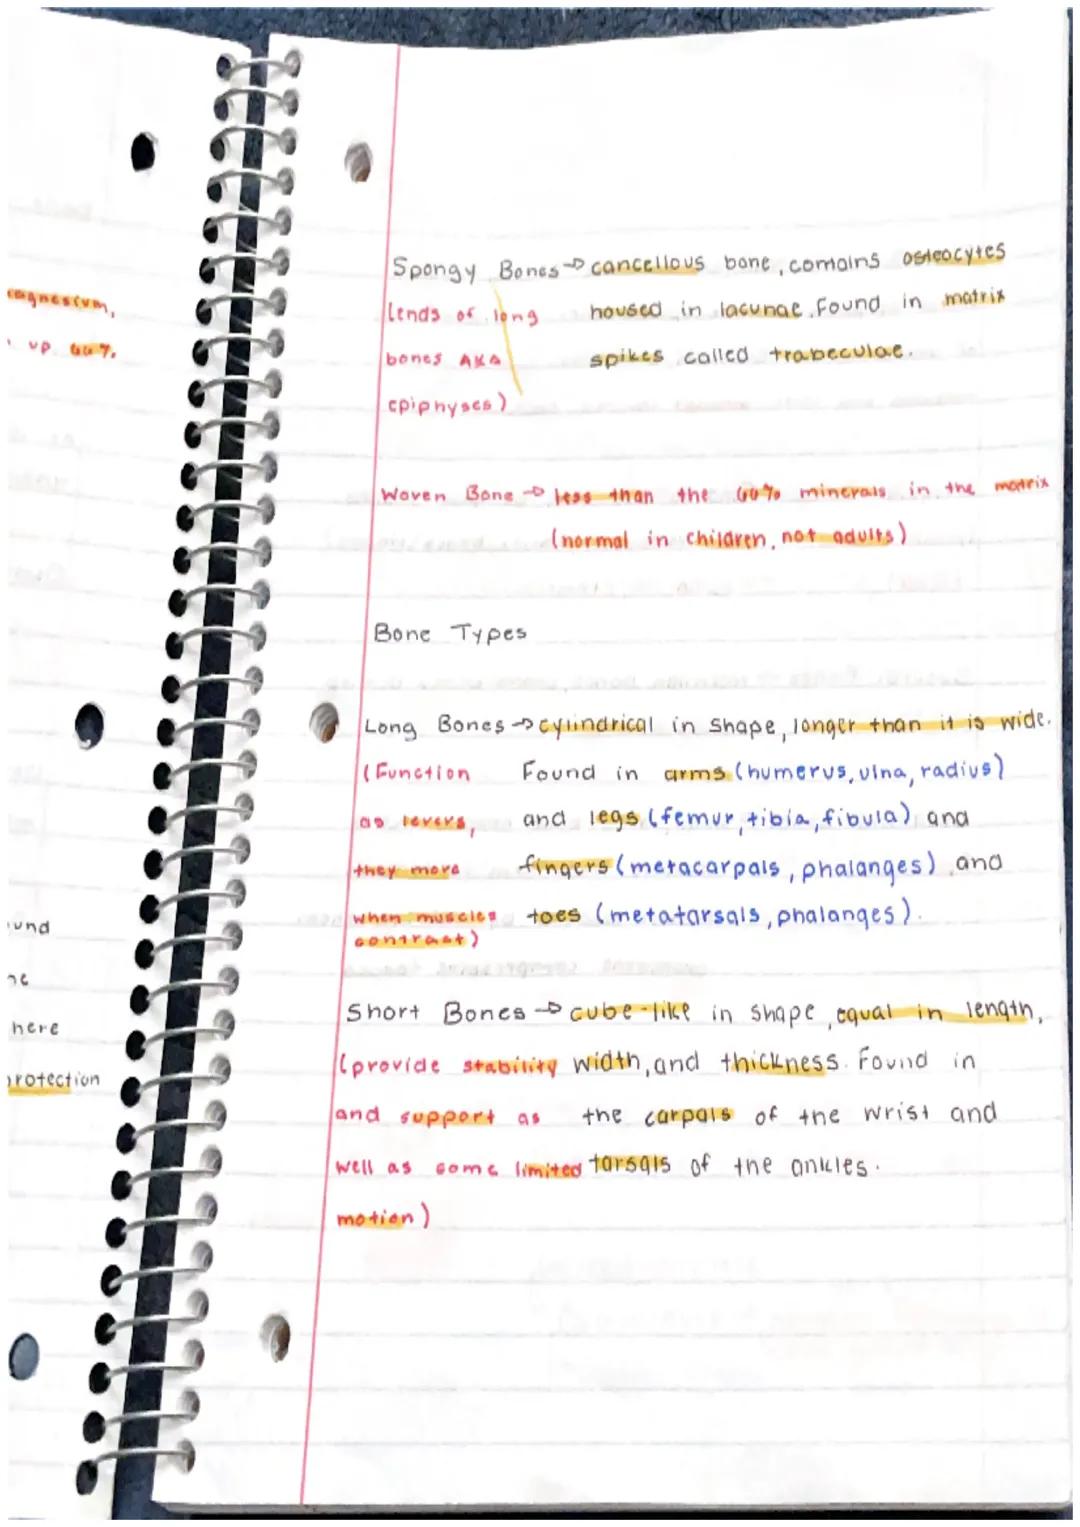 agnesium,
up 60%.
ound
ne
here
protection
Spongy Bones → cancellous bone, contains osteocytes
(ends of long housed in lacunae. Found in matrix
bones AKA spikes called trabeculae.
epiphyses)
Woven Bone → less than the 60% minerals in the matrix
(normal in children, not adults)
Bone Types
Long Bones → cylindrical in shape, longer than it is wide.
(Function Found in arms (humerus, ulna, radius)
as levers, and legs (femur, tibia, fibula) and
they move fingers (metacarpals, phalanges) and
when muscles toes (metatarsals, phalanges).
contract)
Short Bones → cube-like in shape, equal in length,
(provide stability width, and thickness. Found in
and support as the carpals of the wrist and
well as some limited tarsals of the ankles.
motion)